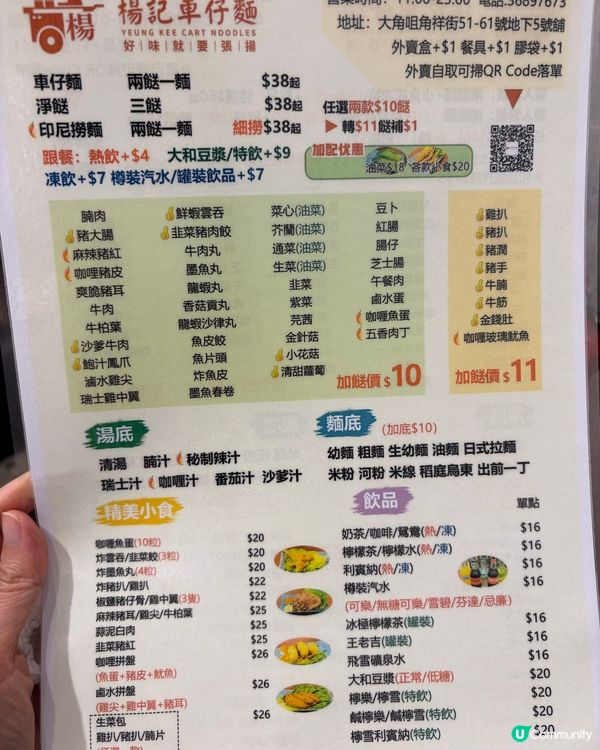 楊
楊記車仔麵
YEUNG KEE CART NOODLES
好|味|就|要|張|揚
地址: 大角咀角祥街51-61號地下5號舖
外賣盒+$1 餐具+$1 膠袋+$1
外賣自取可掃QR Code落單
車仔麵 兩餸一麵 $38起
淨餸 三餸 $38起
印尼撈麵 兩餸一麵 細撈$38起
任選兩款$10餸
轉$11餸補$1
跟餐: 熱飲+$4 大和豆漿/特飲+$9
凍飲+$7 樽裝汽水/罐裝飲品+$7
加配优惠
油菜$18 各款小食$20
腩肉
豬大腸
麻辣豬紅
咖哩豬皮
爽脆豬耳
牛肉
牛柏葉
沙爹牛肉
鮑汁鳳爪
滷水雞尖
瑞士雞中翼
鮮蝦雲吞
韭菜豬肉餃
牛肉丸
墨魚丸
龍蝦丸
香菇貢丸
龍蝦沙律丸
魚皮餃
魚片頭
炸魚皮
墨魚春卷
菜心(油菜)
芥蘭(油菜)
通菜(油菜)
生菜(油菜)
韭菜
紫菜
芫茜
金針菇
小花菇
清甜蘿蔔
豆卜
紅腸
腸仔
芝士腸
午餐肉
鹵水蛋
咖哩魚蛋
五香肉丁
加餸價$10
雞扒
豬扒
豬潤
豬手
牛腩
牛筋
金錢肚
咖哩玻璃魷魚
加餸價$11
湯底
清湯 腩汁 秘制辣汁
瑞士汁 咖哩汁 番茄汁 沙爹汁
麵底 (加底$10)
幼麵 粗麵 生幼麵 油麵 日式拉麵
米粉 河粉 米線 稻庭烏東 出前一丁
精美小食
咖哩魚蛋(10粒) $20
炸雲吞/韭菜餃(3粒) $20
炸墨魚丸(4粒) $20
炸豬扒/雞扒 $22
椒鹽豬仔骨/雞中翼(3隻) $22
麻辣豬耳/雞尖/牛柏葉 $25
蒜泥白肉 $25
韭菜豬紅 $25
咖哩拼盤 $26
(魚蛋+豬皮+魷魚)
鹵水拼盤 $26
(雞尖+雞中翼+豬耳)
生菜包 $26
雞扒/豬扒/腩片
飲品 單點
奶茶/咖啡/鴛鴦(熱/凍) $16
檸檬茶/檸檬水(熱/凍) $16
利賓納(熱/凍) $16
樽裝汽水 $16
(可樂/無糖可樂/雪碧/芬達/忌廉)
冰極檸檬茶(罐裝) $16
王老吉(罐裝) $16
飛雪礦泉水 $16
大和豆漿(正常/低糖) $20
檸樂/檸雪(特飲) $20
鹹檸樂/鹹檸雪(特飲) $20
檸雪利賓納(特飲) $20
U Community